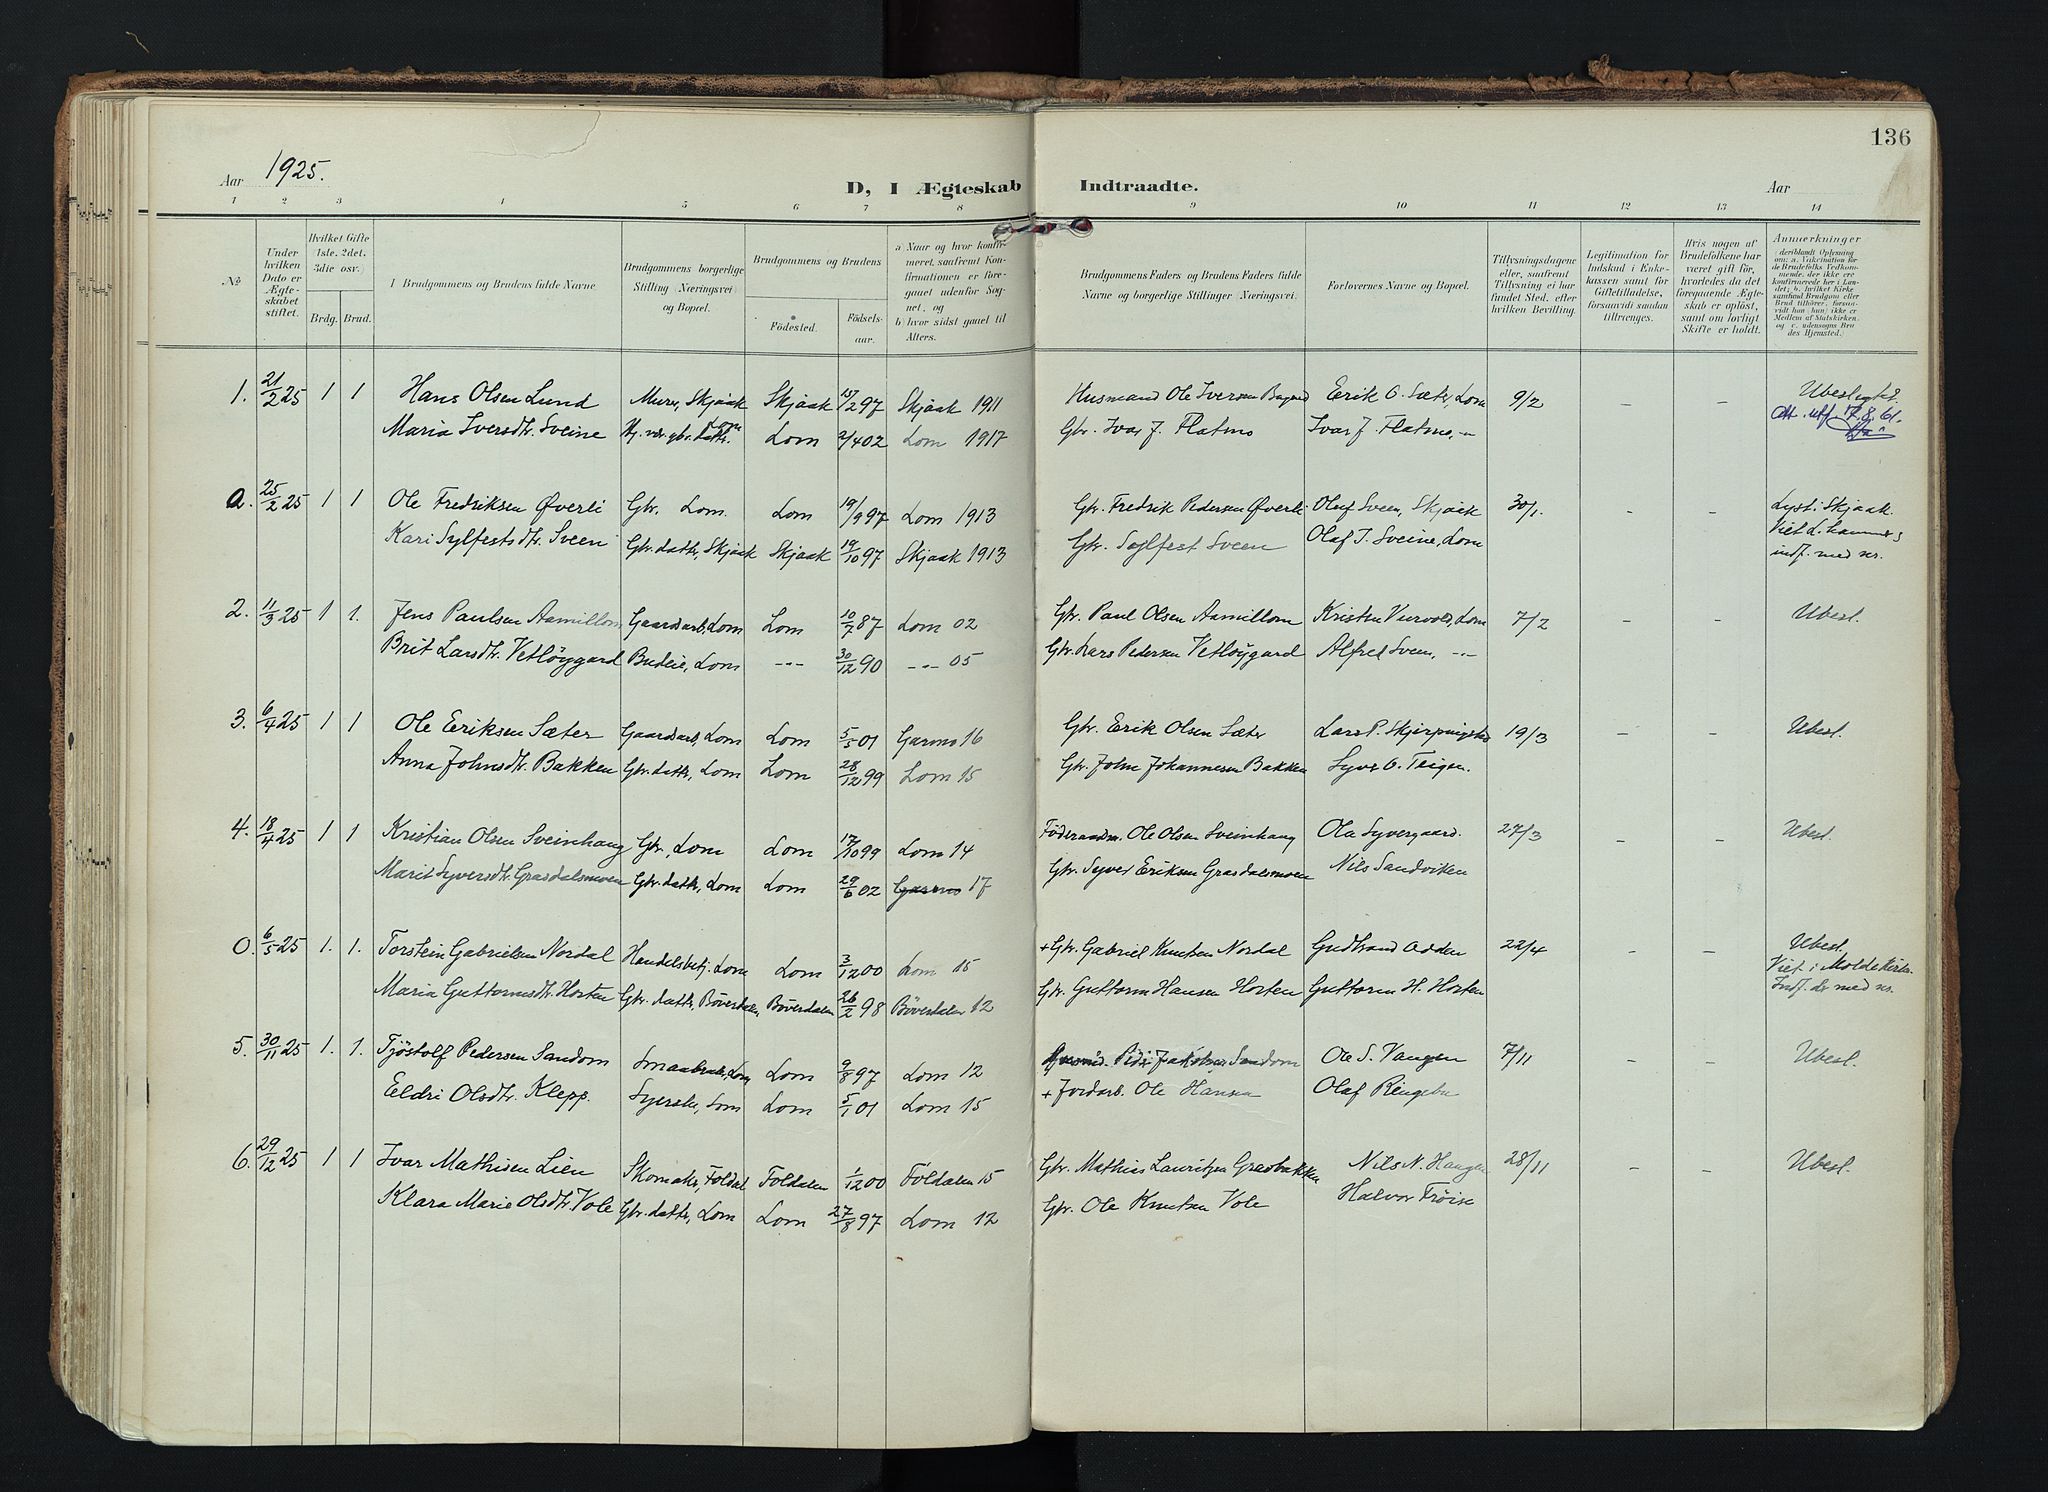 136
Aar 1925.
D, I Ægteskab Indtraadte.
Aar
1 2 3 4 5 6 7 8 9 10 11 12 13 14
№
Under hvilken Dato er Ægteskabet stiftet.
Hvilket Gifte (1ste, 2det, 3die osv.)
Brdg. Brud.
I Brudgommens og Brudens fulde Navne.
Brudgommens borgerlige Stilling (Næringsvei) og Bopæl.
Brudgommens og Brudens
Födested. Födselsaar.
a) Naar og hvor konfirmeret, saafremt Konfirmationen er foregaaet udenfor Sognet, og
b) hvor sidst gaaet til Alters.
Brudgommens Faders og Brudens Faders fulde Navne og borgerlige Stillinger (Næringsvei).
Forlovernes Navne og Bopæl.
Tillysningsdagene eller, saafremt Tillysning ei har fundet Sted, efter hvilken Bevilling.
Legitimation for Indskud i Enkekassen samt for Giftetilladelse, forsaavidt saadan tiltrænges.
Hvis nogen af Brudefolkene har været gift før, hvorledes da det foregaaende Ægteskab er opløst, samt om lovligt Skifte er holdt.
Anmerkninger
deriblandt Oplysning om: a. Vakcination for de Brudefolks Vedkommende, der ikke ere konfirmerede her i Landet; b. hvilket Kirkesamfund Brudgom eller Brud tilhører, forsaavidt han (hun) ikke er Medlem af Statskirken, og c. udensogns Brudes Hjemsted.)
1. 21/2 25 1 1 Hans Olsen Lund Murer, Skjaak Skjaak 15/2 97 Skjaak 1911 Husmand Ole Iversen Erik O. Sæter, Lom 9/2 – – Ubeslægtet.
Maria Iversdtr. Sveine gbr. datter. Lom Lom 2/4 02 Lom 1917 Gbr. Ivar J. Flatmo Ivar J. Flatmo, -"- Att. utf. 17.8.61.
a. 25/2 25 1 1 Ole Fredriksen Øverli Gbr. Lom. Lom 19/9 97 Lom 1913 Gbr. Fredrik Pedersen Øverli Olaf Sveen, Skjaak 30/1. – – Lyst i Skjaak.
Kari Sylfestsdtr. Sveen Gbr. datter, Skjaak Skjaak 19/10 97 Skjaak 1913 Gbr. Sylfest Sveen Olaf J. Sveine, Lom Viet L.
indf. med nr.
2. 11/3 25 1 1. Jens Paulsen Aamillom Gaardsarb., Lom Lom 10/7 87 Lom 02 Gbr. Paul Olsen Aamillom Kristen Lom 7/2 – – Ubesl.
Brit Larsdtr. Vetløygard Budeie, Lom --- 30/12 90 --- 05 Gbr. Lars Pedersen Vetløygard Alfred Sveen, ---
3. 6/4 25 1 1 Ole Eriksen Sæter Gaardsarb., Lom Lom 5/5 01 Garmo 16 Gbr. Erik Olsen Sæter Lars P. Skjerpingstad 19/3 – – Ubesl.
Anna Johnsdtr. Bakken Gbr. datter, Lom Lom 28/12 99 Lom 15 Gbr. John Johannesen Bakken Syver O. Teigen.
4. 18/4 25 1 1 Kristian Olsen Sveinhaug Gbr., Lom Lom 17/10 99 Lom 14 Föderaadsm. Ole Olsen Sveinhaug Ola Syvergaard. 27/3 – – Ubesl.
Marit Syversdtr. Grasdalsmoen Gbr. datter, Lom Lom 29/6 02 Garmo 17 Gbr. Syver Eriksen Grasdalsmoen Nils Sandviken
0. 6/5 25 1. 1. Torstein Gabrielsen Nordal Handelsbetj. Lom Lom 3/1 200 Lom 15 + Gbr. Gabriel Knutsen Nordal Gudbrand Odden 22/4 – – Ubesl.
Maria Guttormsdtr. Horten Gbr. datter, Böverdalen Böverdalen 26/2 98 Böverdalen 12 Gbr. Guttorm Hansen Horten Guttorm H. Horten Viet i Molde kirke.
Indf. der med nr.
5. 30/11 25 1. 1. Tjöstolf Pedersen Sandom Smaabruker, Lom Lom 9/8 97 Lom 12 Sandom Ole S. Vangen 7/11 Ubesl.
Eldri Olsdtr. Klepp. Syerske, Lom Lom 5/1 01 Lom 15 + Jordarb. Ole Hansen Olaf Ringebu
6. 29/12 25 1 1 Ivar Mathisen Lien Skomaker, Foldal Foldalen 1/1 200 Foldalen 15 Gbr. Mathias Lauritzen Gravbakken Nils N. Haugen 28/11 – – Ubesl.
Klara Marie Olsdtr. Vole Gbr. datter, Lom Lom 27/8 97 Lom 12 Gbr. Ole Knutsen Vole Halvor Frøise